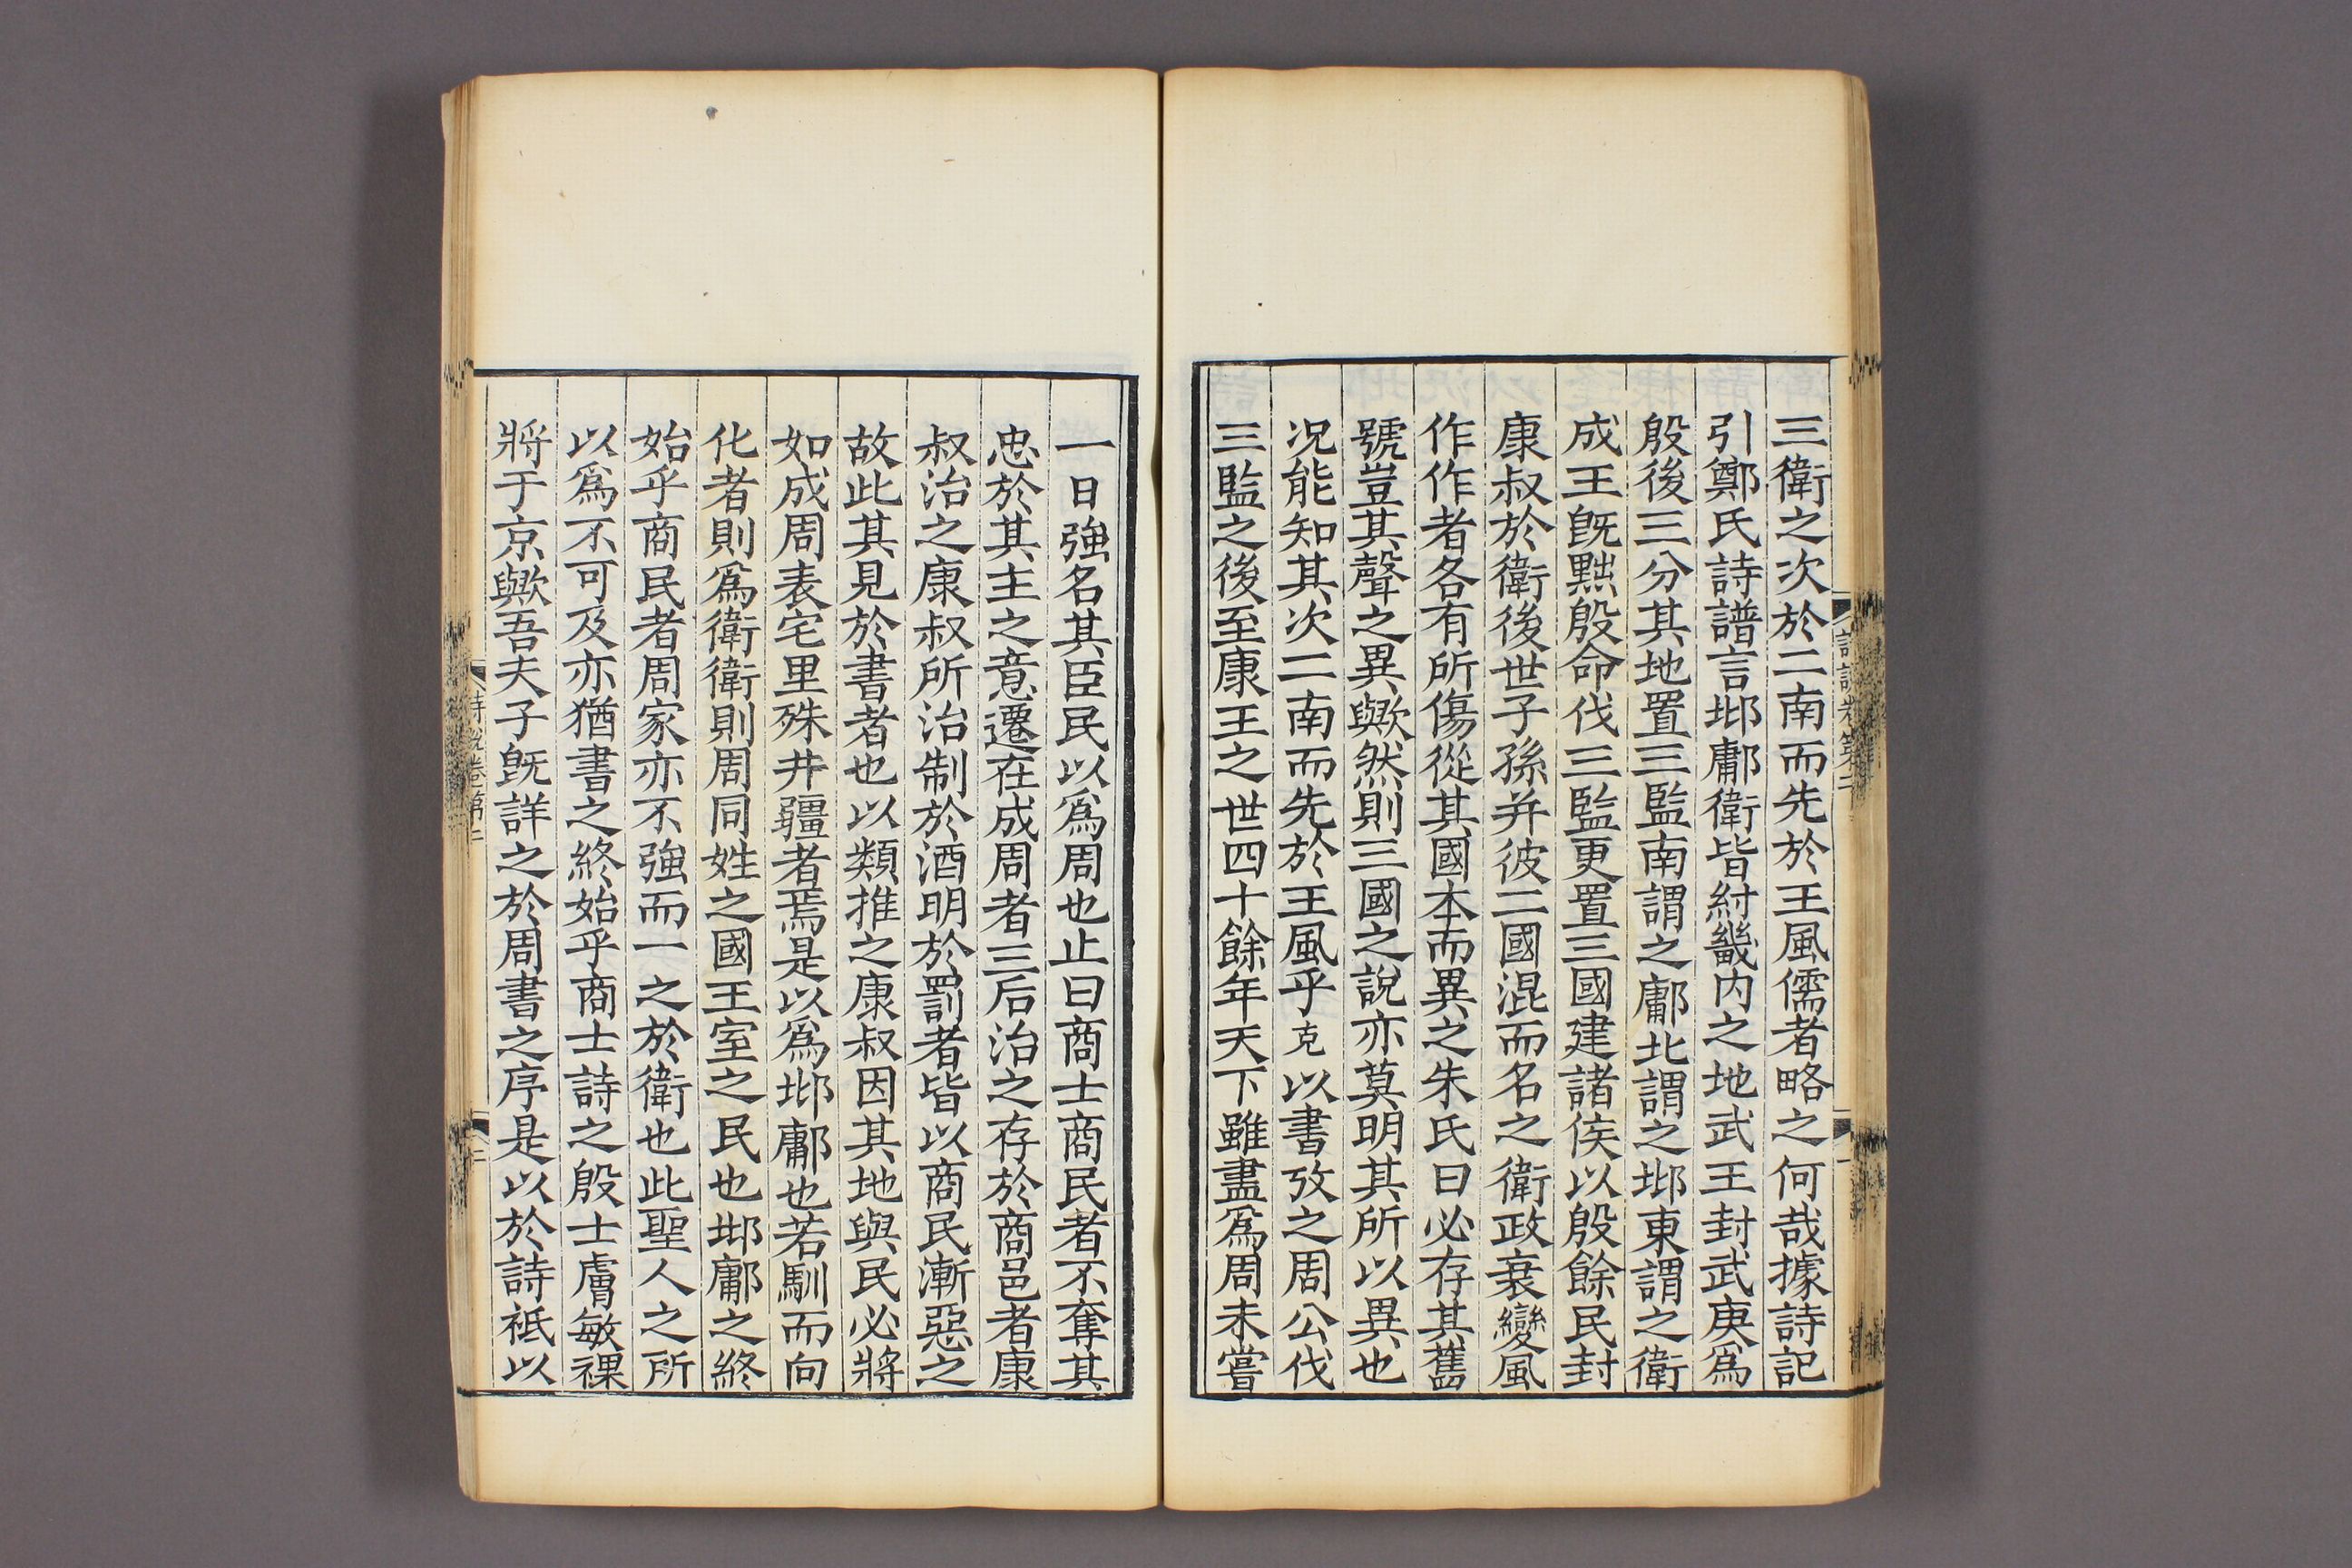 三衛之次於二南而先於王風儒者略之何哉據詩記
引鄭氏詩譜言邶鄘衛皆紂畿内之地武王封武庚爲
殷後三分其地置三監南謂之鄘北謂之邶東謂之衛
成王旣黜殷命伐三監更置三國建諸侯以殷餘民封
康叔於衛後世子孫并彼二國混而名之衛政衰變風
作作者各有所傷從其國本而異之朱氏曰必存其舊
號豈其聲之異歟然則三國之說亦莫明其所以異也
况能知其次二南而先於王風乎克以書攷之周公伐
三監之後至康王之世四十餘年天下雖盡爲周未嘗
一日強名其臣民以爲周也止曰商士商民者不奪其
忠於其主之意遷在成周者三后治之存於商邑者康
叔治之康叔所治制於酒明於罰者皆以商民漸惡之
故此其見於書者也以類推之康叔因其地與民必將
如成周表宅里殊井疆者焉是以爲邶鄘也若馴而向
化者則爲衛衛則周同姓之國王室之民也邶鄘之終
始乎商民者周家亦不強而一之於衛也此聖人之所
以爲不可及亦猶書之終始乎商士詩之殷士膚敏祼
將于京歟吾夫子旣詳之於周書之序是以於詩祗以
詩說卷第二
二